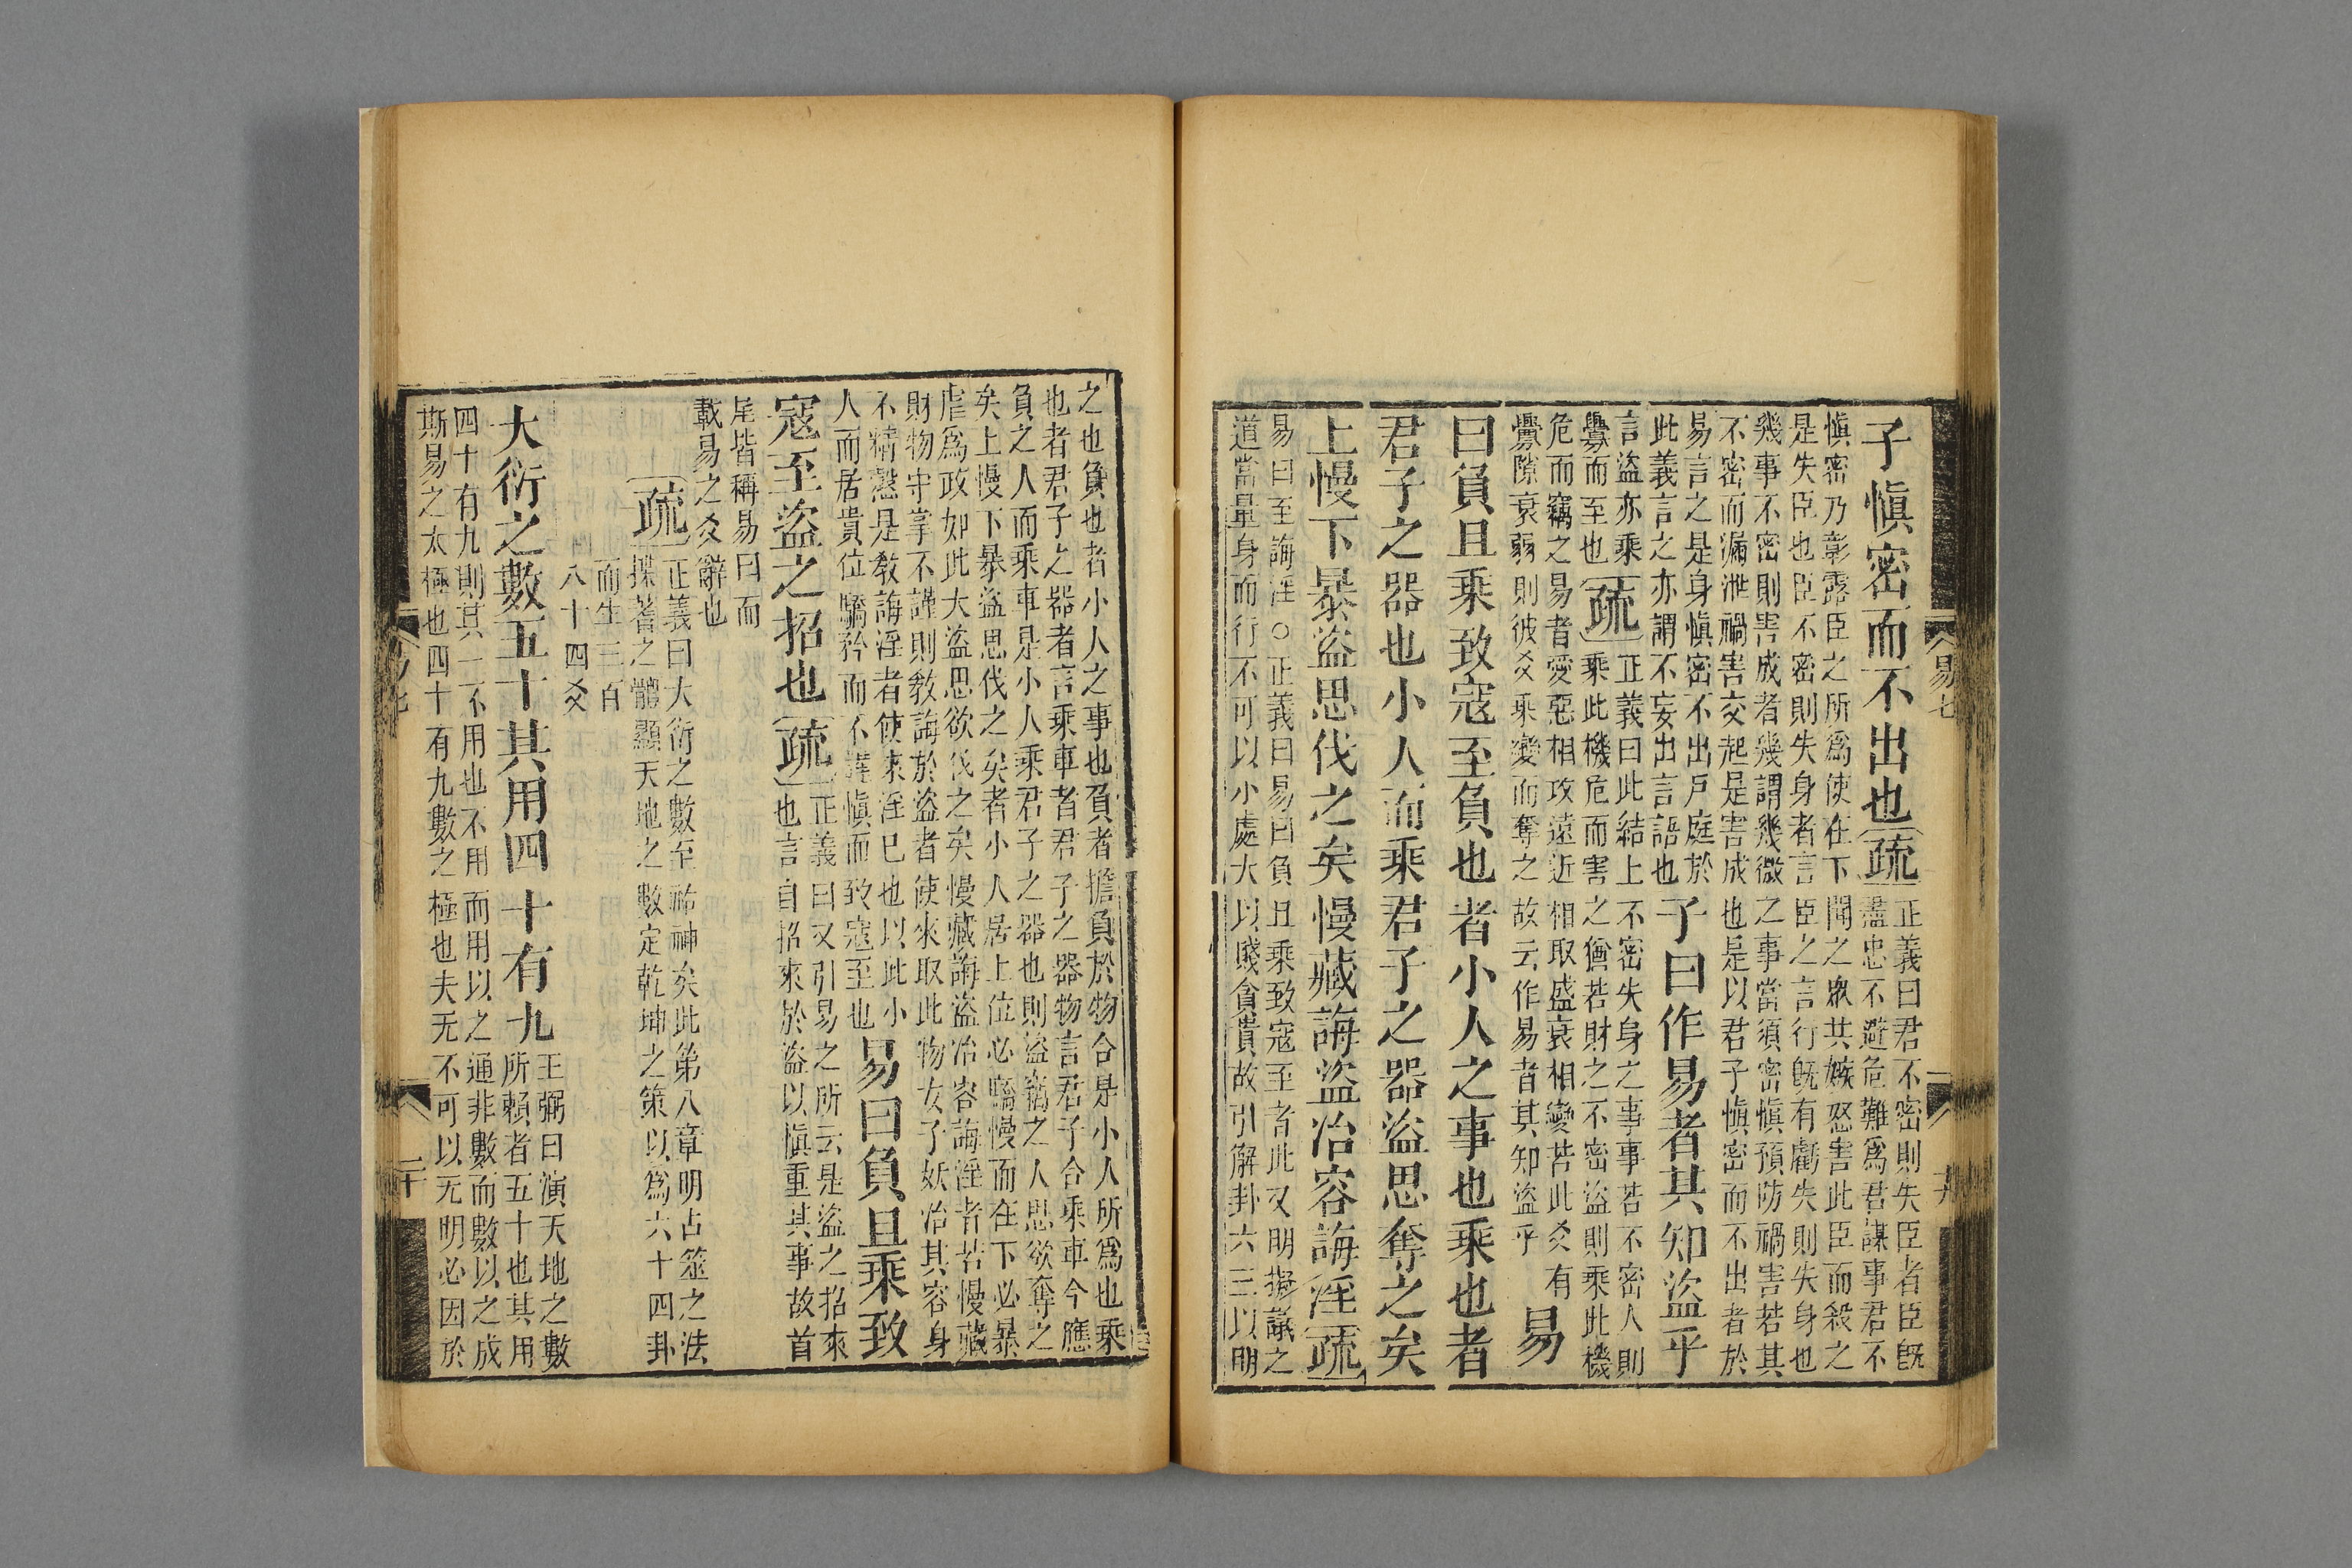 易七
十九
子慎密而不出也疏
正義曰君不密則失臣者臣既
盡忠不避危難爲君謀事君不
慎密乃彰露臣之所爲使在下聞之衆共嫉怒害此臣而殺之
是失臣也臣不密則失身者言臣之言行既有虧失則失身也
幾事不密則害成者幾謂幾微之事當須密慎預防禍害若其
不密而漏泄禍害交起是害成也是以君子慎密而不出者於
易言之是身慎密不出戶庭於
此義言之亦謂不妄出言語也
子曰作易者其知盜乎
言盜亦乘
釁而至也
疏
正義曰此結上不密失身之事事若不密人則
乘此機危而害之猶若財之不密盜則乘此機
危而竊之易者愛惡相攻遠近相取盛衰相變若此爻有
釁隙衰弱則彼爻乘變而奪之故云作易者其知盜乎
易
曰負且乘致寇至負也者小人之事也乘也者
君子之器也小人而乘君子之器盜思奪之矣
上慢下暴盜思伐之矣慢藏誨盜冶容誨淫疏
易曰至誨淫○正義曰易曰負且乘致寇至者此又明擬議之
道當量身而行不可以小處大以賤貪貴故引解卦六三以明
之也負也者小人之事也負者擔負於物合是小人所爲也乘
也者君子之器者言乘車者君子之器物言君子合乘車今應
負之人而乘車是小人乘君子之器也則盜竊之人思欲奪之
矣上慢下暴盜思伐之矣者小人居上位必驕慢而在下必暴
虐爲政如此大盜思欲伐之矣慢藏誨盜冶容誨淫者若慢藏
財物守掌不謹則敎誨於盜者使來取此物女子妖冶其容身
不精慤是敎誨淫者使來淫已也以此小
人而居貴位驕矜而不謹慎而致寇至也
易曰負且乘致
寇至盜之招也疏
正義曰又引易之所云是盜之招來
也言自招來於盜以慎重其事故首
尾皆稱易曰而
載易之爻辭也
疏
正義曰大衍之數至祐神矣此第八章明占筮之法
揲蓍之體顯天地之數定乾坤之策以爲六十四卦
而生三百
八十四爻
大衍之數五十其用四十有九
王弼曰演天地之數
所賴者五十也其用
四十有九則其一不用也不用而用以之通非數而數以之成
斯易之太極也四十有九數之極也夫无不可以无明必因於
易七
二十